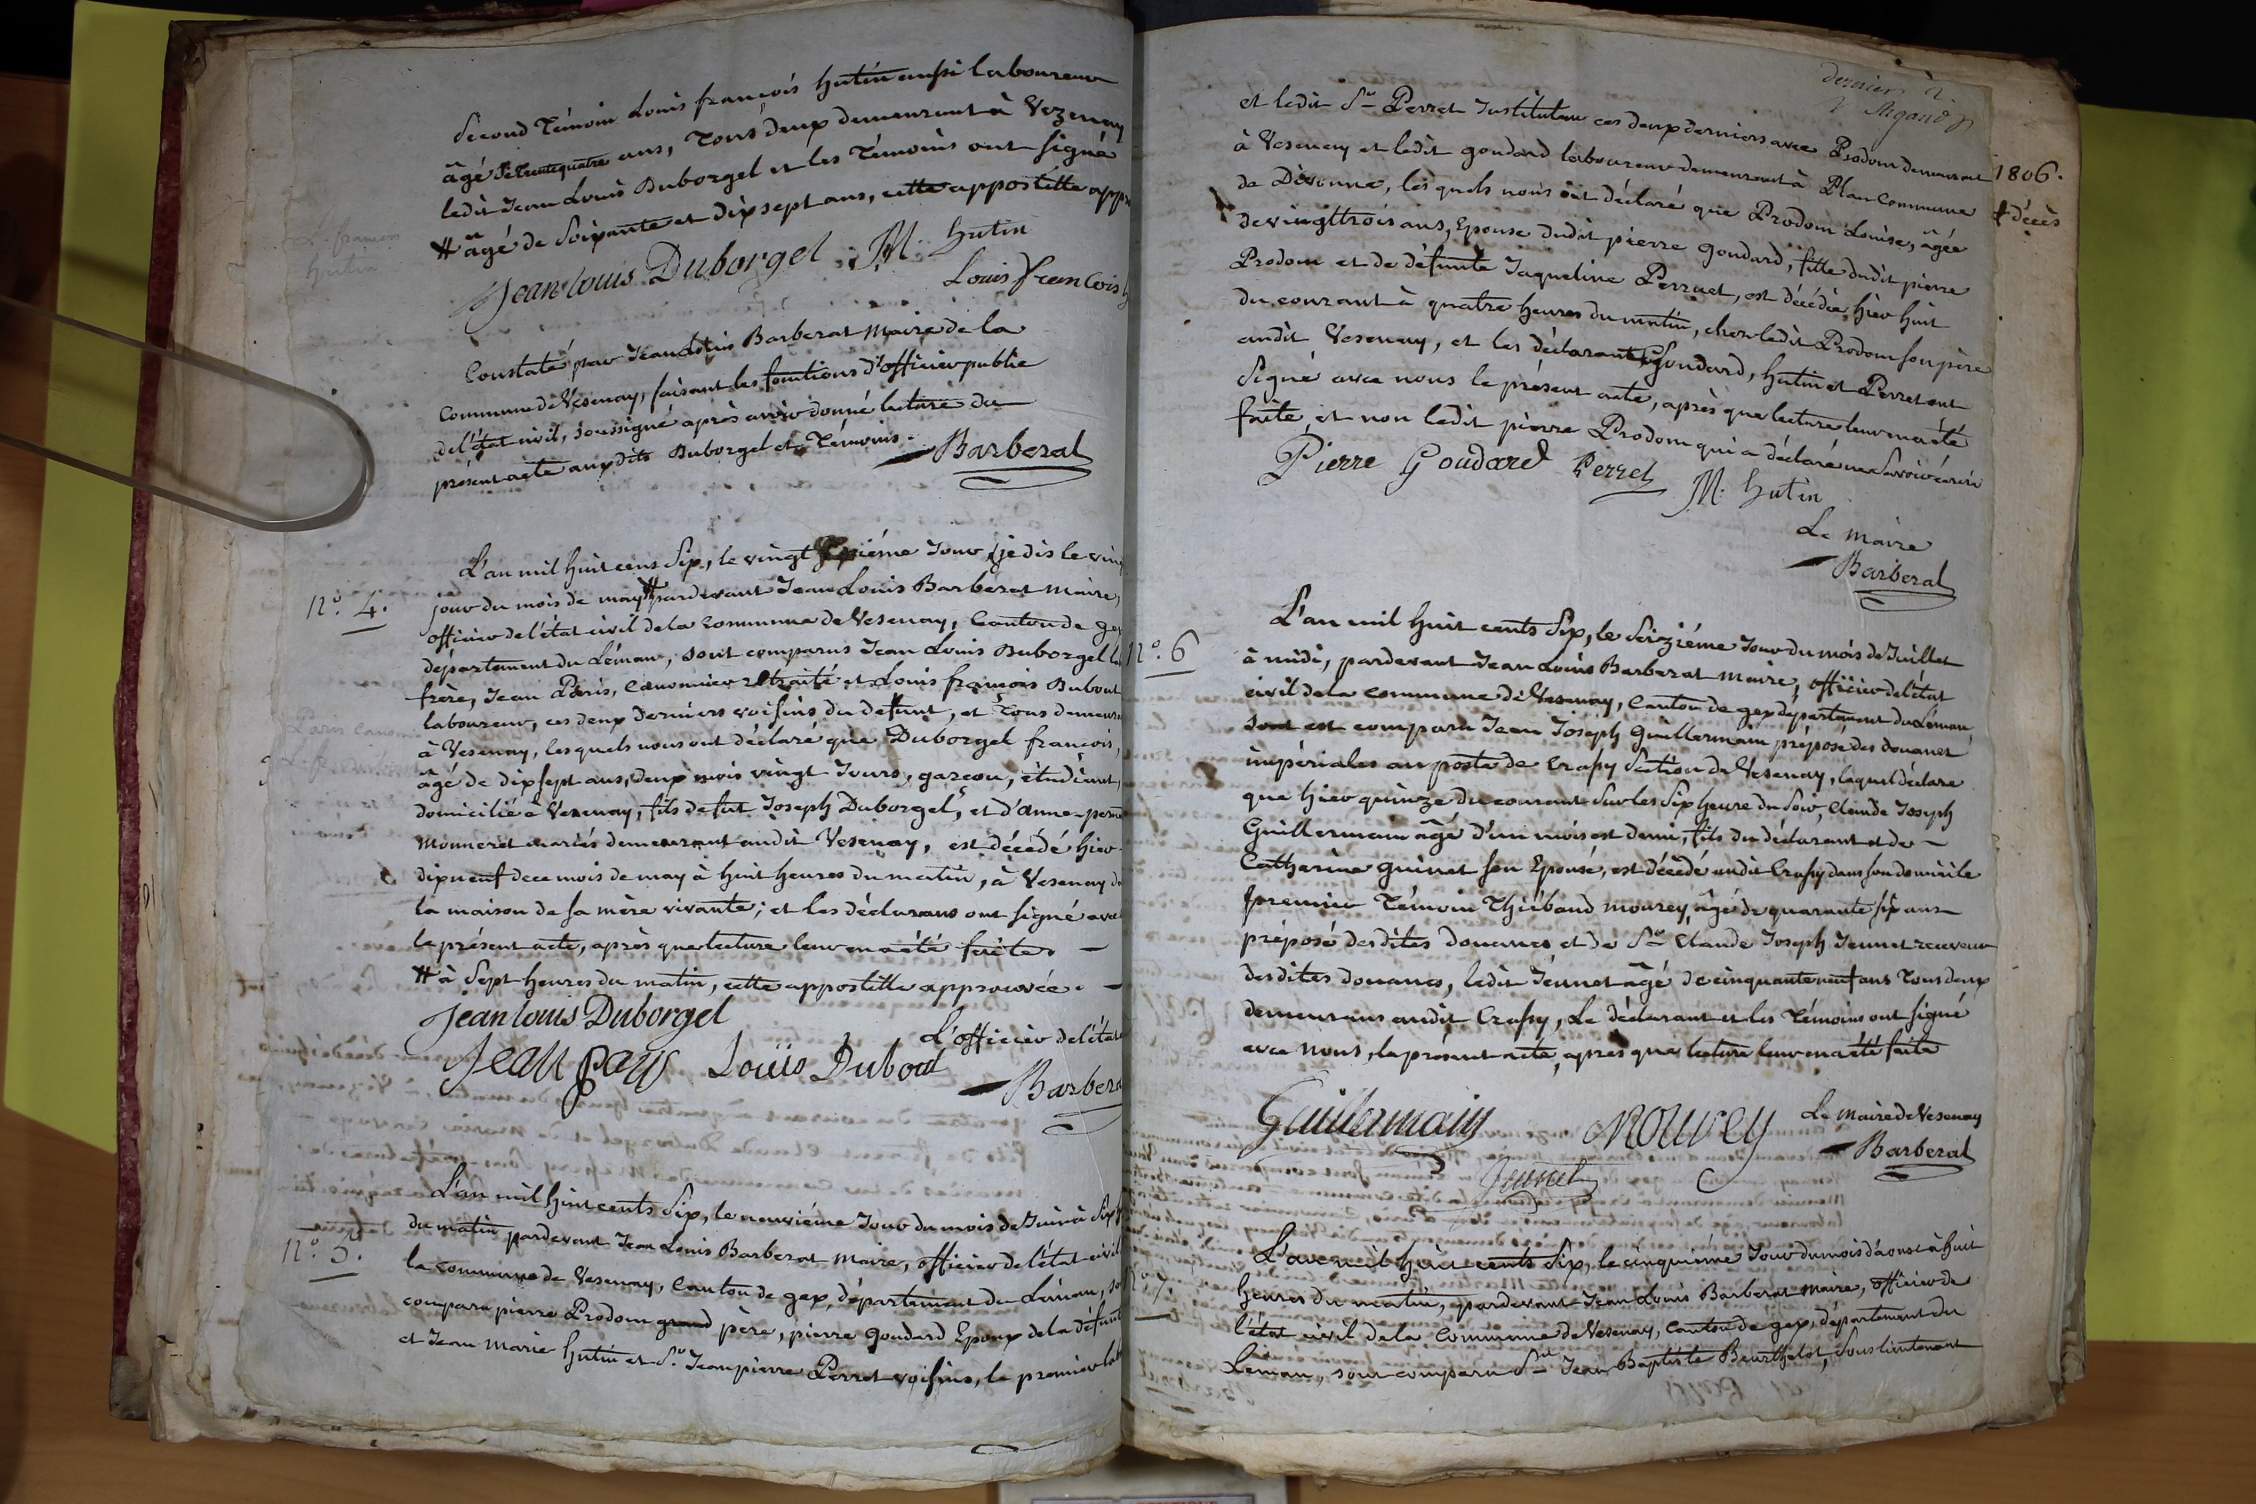 Second Témoin Louis françois hutin aussi laboureur
âgé de trentequatre ans, tous deux demeurant à Vezenay
ledit Jean Louis Duborgel et les Témoins ont signé
# âgé de soixante et dix sept ans, cette appostille app
Jean louis Duborgel M. hutin
Louis francois h
Constaté par Jean Louis Barberat Maire de la
Commune de Vesenay, faisant les fonctions d'officier public
de l'état civil, soussigné après avoir donné lecture du
présent acte auxdits Duborgel et Témoins.
Barberat
n.° 4.
L'an mil huit cens six, le vingt jour je dis le ving
jour du mois de may # pardevant Jean Louis Barberat maire,
officier de l'état civil de la Commune de Vesenay, Canton de gex
département du Léman, sont comparus Jean Louis Duborgel
frère, Jean Paris, Canonnier retraité et Louis françois Dubout
laboureur, ces deux derniers voisins du defunt, et Tous demeura
à Vesenay, lesquels nous ont déclaré que Duborgel françois,
âgé de dix sept ans, deux mois vingt Jours, garçon, étudiant,
domicilié à Vesenay, fils de fut Joseph Duborgel, et d'anne-perne
Monneret mariés demeurant audit Vesenay, est décédé hier
dix neuf de ce mois de may à huit heures du matin, à Vesenay da
la maison de sa mère vivante; et les déclarans ont signé avec
le présent acte, après que lecture leur en a été faite.
# à Sept heures du matin, cette appostille approuvée.
Jean louis Duborgel
L'officier de l'état
Jean paris Louis Dubout
Barbera
n.° 5.
L'an mil huit cents six, le neuvième Jour du mois de Juin à six h
du matin pardevant Jean Louis Barberat Maire, officier de l'état civil
la commune de Vesenay, Canton de gex, département du Léman, so
comparu pierre Prodom grand père, pierre Goudard Epoux de la défunt
et Jean Marie hutin et S.r Jean pierre Perret voisins, le premier lab
dernier
Rigaud
1806.
décès
et ledit S.r Perret Instituteur ces deux derniers avec Prodom demeurant
à Vesenay et ledit goudard laboureur demeurant à Plan Commune
de Divonne, lesquels nous ont déclaré que Prodom Louise, âgée
de vingt trois ans, Epouse dudit pierre goudard, fille dudit pierre
Prodom et de défunte Jaqueline Perruet, est décédée hier huit
du courant à quatre heures du matin, chez ledit Prodom son père
audit Vesenay, et les déclarants Goudard, hutin et Perret ont
signé avec nous le présent acte, après que lecture leur en a été
faite, et non ledit pierre Prodom qui a déclaré ne savoir écrire
Pierre Goudard Perret M. hutin
Le Maire
Barberat
n.° 6
L'an mil huit cents six, le seizième Jour du mois de Juillet
à midi, pardevant Jean Louis Barberat Maire, officier de l'état
civil de la commune de Vesenay, Canton de gex département du Léman
sont est comparu Jean Joseph Guillermain préposé des douanes
impériales au poste de Crassy Section de Vesenay, lequel déclare
que hier quinze du courant sur les six heure du soir, Claude Joseph
Guillermain âgé d'un mois et demi, fils du déclarant et de
Catherine guinet son Epouse, est décédé audit Crassy dans son domicile
premier Témoin Thiébaud mourey, âgé de quarante six ans
préposé desdites douanes et de S.r Claude Joseph Jeunet receveur
desdites douanes, ledit Jeunet âgé de cinquante neuf ans Tous deux
demeurans audit Crassy, Le déclarant et les Témoins ont signé
avec nous, le présent acte, après que lecture leur en a été faite
Guillermain Mourey
Le Maire de Vesenay
Jeunet
Barberat
n.° 7.
L'an mil huit cents six, le cinquième Jour du mois d'aoust à huit
heures du matin, pardevant Jean Louis Barberat Maire, officier de
l'état civil de la Commune de Vesenay, canton de gex, département du
Léman, sont comparu S.r Jean Baptiste Beurthelot, Sous lieutenant